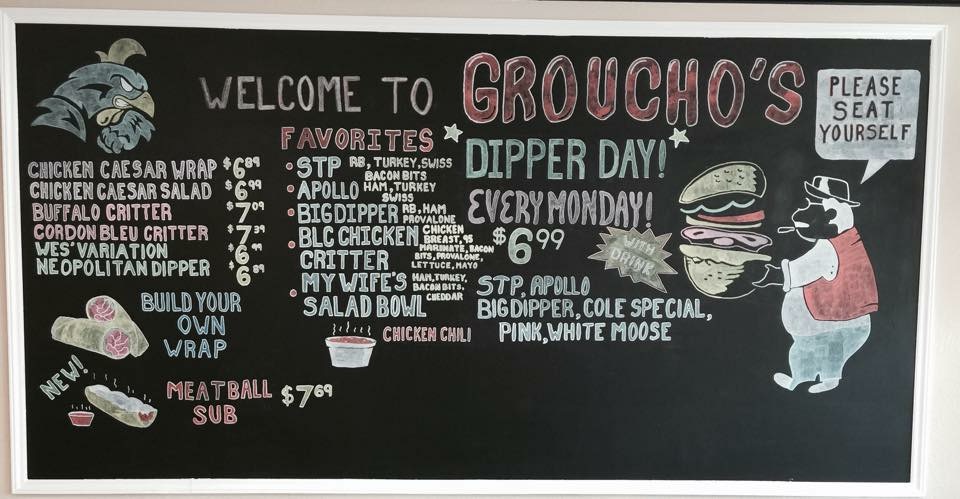 WELCOME TO GROUCHO'S
PLEASE
SEAT
YOURSELF
CHICKEN CAESAR WRAP $6.89
CHICKEN CAESAR SALAD $6.99
BUFFALO CRITTER $7.09
CORDON BLEU CRITTER $7.39
WES' VARIATION $6.99
NEOPOLITAN DIPPER 6.89
BUILD YOUR
OWN
WRAP
NEW!
MEATBALL $7.69
SUB
FAVORITES
• STP RB, TURKEY, SWISS
BACON BITS
• APOLLO HAM, TURKEY
SWISS
• BIGDIPPER RB, HAM
PROVALONE
• BLC CHICKEN CHICKEN
BREAST, 95
CRITTER MARINATE, BACON
BITS, PROVALONE,
LETTUCE, MAYO
• MY WIFE'S HAM, TURKEY,
BACON BITS,
SALAD BOWL CHEDDAR
CHICKEN CHILI
DIPPER DAY!
EVERY MONDAY!
$6.99
WITH
DRINK
STP, APOLLO
BIGDIPPER, COLE SPECIAL,
PINK, WHITE MOOSE